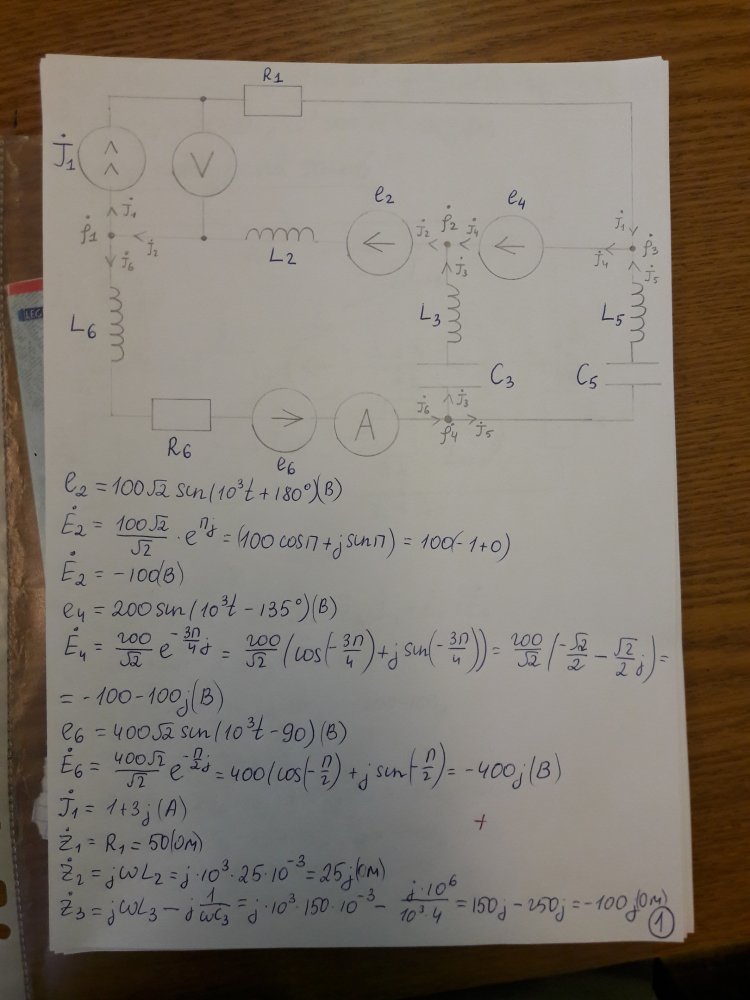 R1
J̇1
V
e2
e4
J̇1
φ̇2
J̇2
J̇4
J̇1
φ̇1
J̇2
φ̇3
J̇4
J̇6
L2
J̇3
J̇5
L6
L3
L5
C3
C5
J̇6
J̇3
A
R6
e6
φ̇4
J̇5
e2 = 100√2 sin(10³t + 180°)(В)
Ė2 = 100√2/√2 · e^πj = (100 cosπ + j sinπ) = 100(-1+0)
Ė2 = -100(В)
e4 = 200 sin(10³t - 135°)(В)
Ė4 = 200/√2 e^(-3π/4 j) = 200/√2 (cos(-3π/4) + j sin(-3π/4)) = 200/√2 (-√2/2 - √2/2 j) =
= -100 - 100j (В)
e6 = 400√2 sin(10³t - 90)(В)
Ė6 = 400√2/√2 e^(-π/2 j) = 400(cos(-π/2) + j sin(-π/2) = -400j (В)
J̇1 = 1+3j (А)
+
Ż1 = R1 = 50(Ом)
Ż2 = jωL2 = j·10³·25·10⁻³ = 25j(Ом)
Ż3 = jωL3 - j 1/ωC3 = j·10³·150·10⁻³ - j·10⁶/10³·4 = 150j - 250j = -100j(Ом)
1